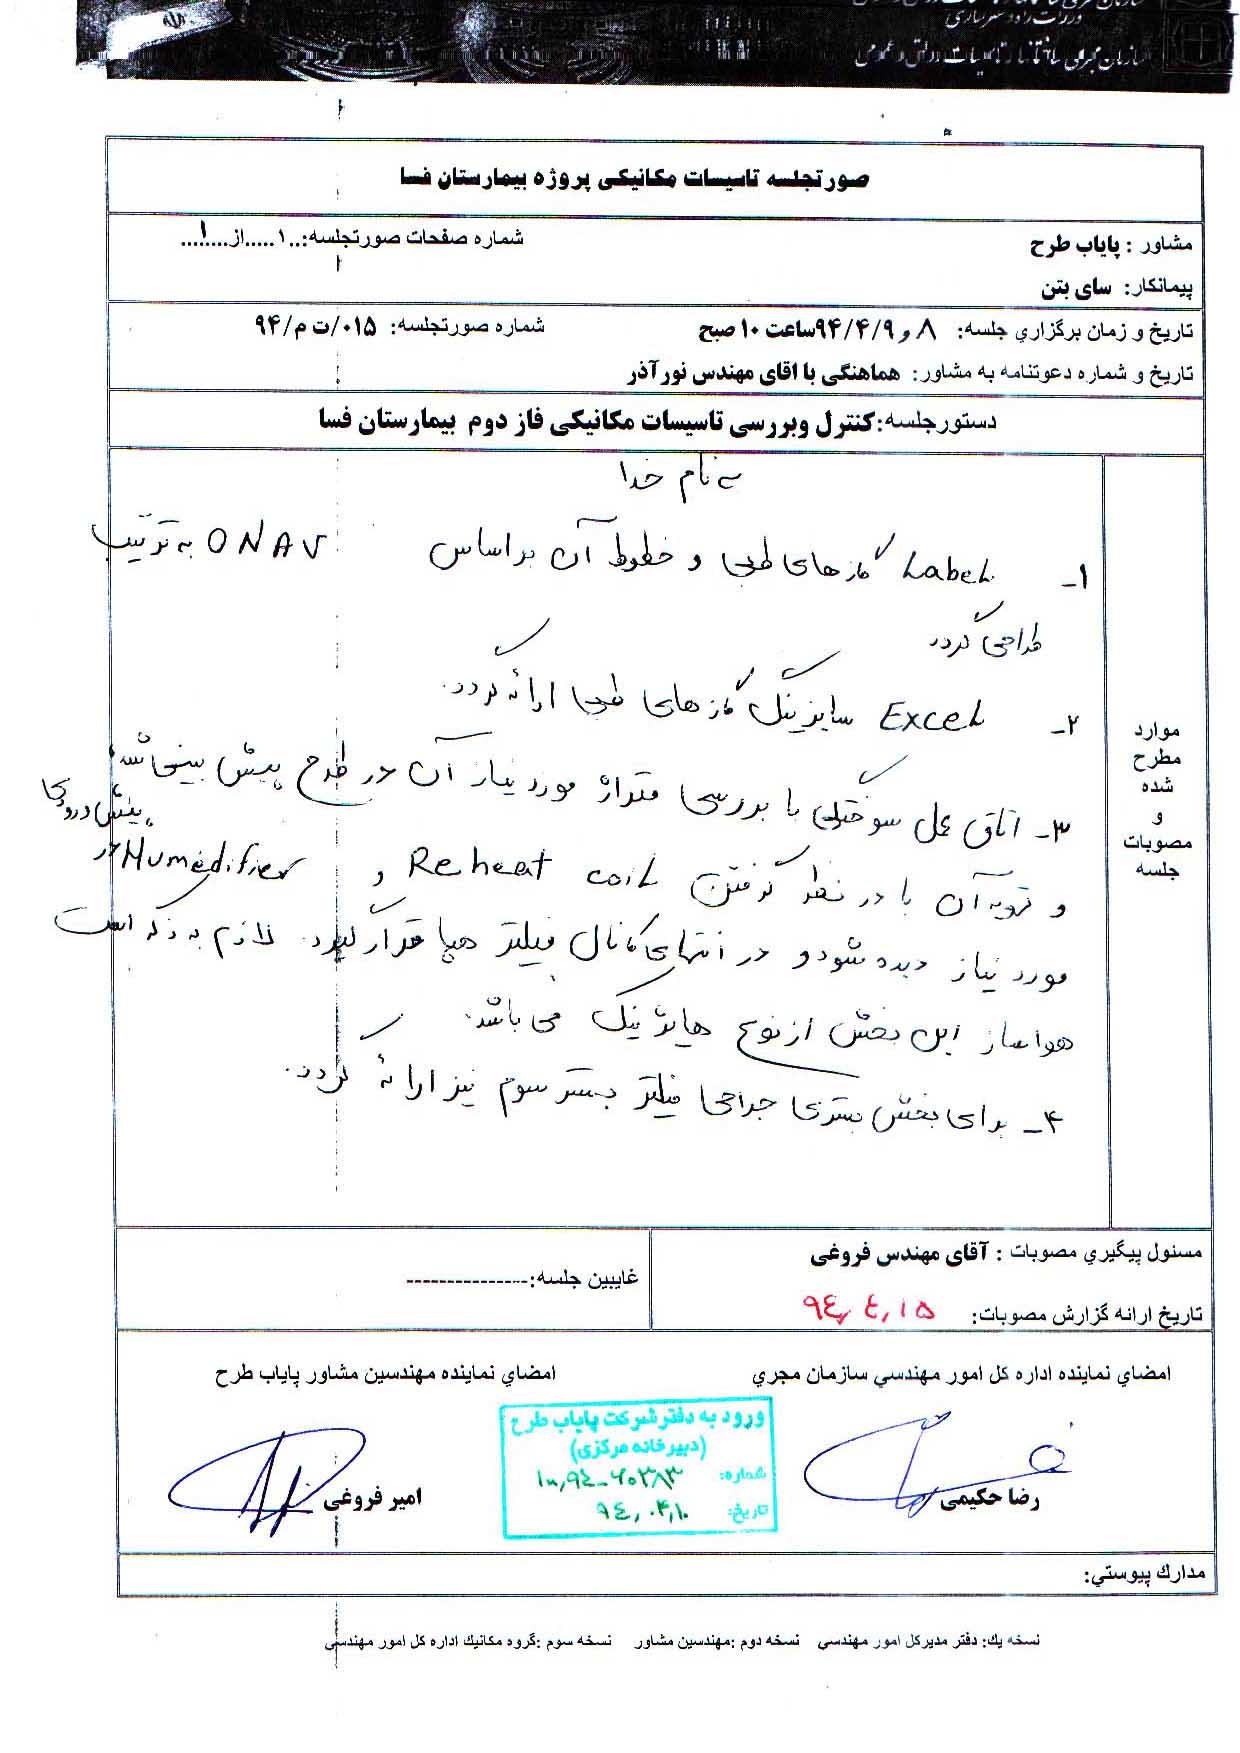 وزارت راه و شهرسازی
سازمان مجری ساختمانها و تاسیسات دولتی و عمومی
صورتجلسه تاسیسات مکانیکی پروژه بیمارستان فسا
مشاور : پایاب طرح
شماره صفحات صورتجلسه:..۱.....از....۱....
پیمانکار: سای بتن
تاریخ و زمان برگزاري جلسه: ۸ و ۹۴/۴/۹ساعت ۱۰ صبح
شماره صورتجلسه: ۰۱۵/ت م/۹۴
تاریخ و شماره دعوتنامه به مشاور: هماهنگی با اقای مهندس نورآذر
دستورجلسه:کنترل وبررسی تاسیسات مکانیکی فاز دوم بیمارستان فسا
موارد
مطرح
شده
و
مصوبات
جلسه
به نام خدا
۱- Label گازهای طبی و خطوط آن براساس ONAV به ترتیب
طراحی گردد
۲- Excel سایزینگ گازهای طبی ارائه گردد.
۳- اتاق عمل سوختگی با بررسی متراژ مورد نیاز آن در طرح پیش بینی باشد
و تهویه آن با در نظر گرفتن Reheat coil و Humedifier در
مورد نیاز دیده شود و در انتهای کانال فیلتر هپا قرار گیرد. لازم به ذکر است
هواساز این بخش از نوع هایژنیک می باشد.
۴- برای بخش بستری جراحی فیلتر بستر سوم نیز ارائه گردد.
مسئول پیگیري مصوبات : آقای مهندس فروغی
غایبین جلسه:---------------
تاریخ ارائه گزارش مصوبات: ۹٤,٤,۱۵
امضاي نماینده اداره کل امور مهندسي سازمان مجري
امضاي نماینده مهندسین مشاور پایاب طرح
ورود به دفتر شرکت پایاب طرح
(دبیرخانه مرکزی)
شماره: ۱۰,۹٤-۲۰۳۸۳
تاریخ: ۹٤,۰۴,۱۰
رضا حکیمی
امیر فروغی
مدارك پیوستي:
نسخه یك: دفتر مدیرکل امور مهندسي نسخه دوم :مهندسین مشاور نسخه سوم :گروه مکانیك اداره کل امور مهندسي